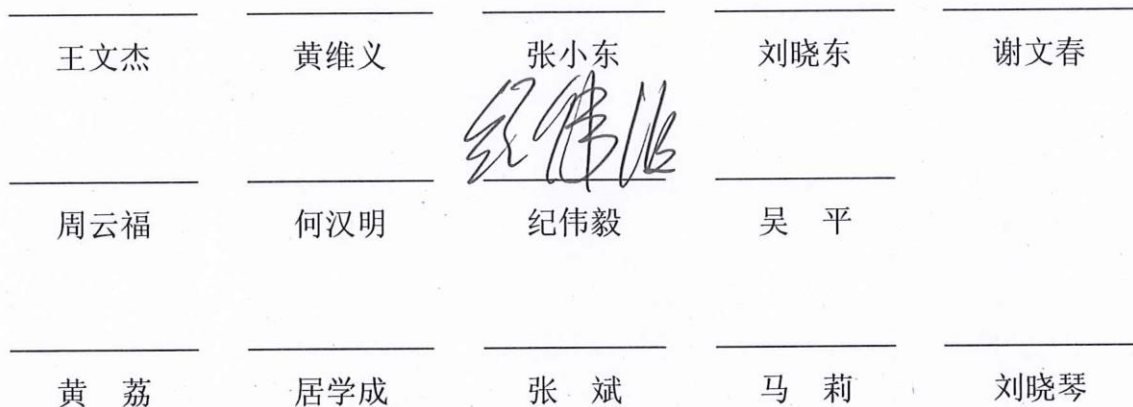 王文杰 黄维义 张小东 刘晓东 谢文春
周云福 何汉明 纪伟毅 吴 平
黄 荔 居学成 张 斌 马 莉 刘晓琴